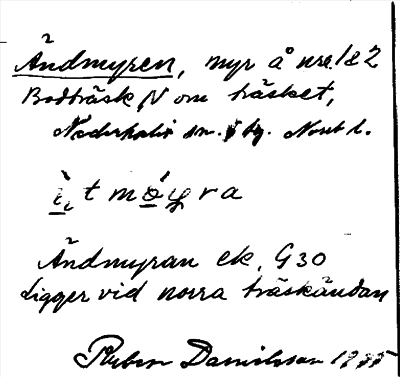 Ändmyren, myr å nre 1 & 2
Bodträsk, N om träsket,
Nederkalix sn. Nbt l.
ìtmóyra
Ändmyran ek. G30
Ligger vid norra träskändan
Ruben Danielsson 1935